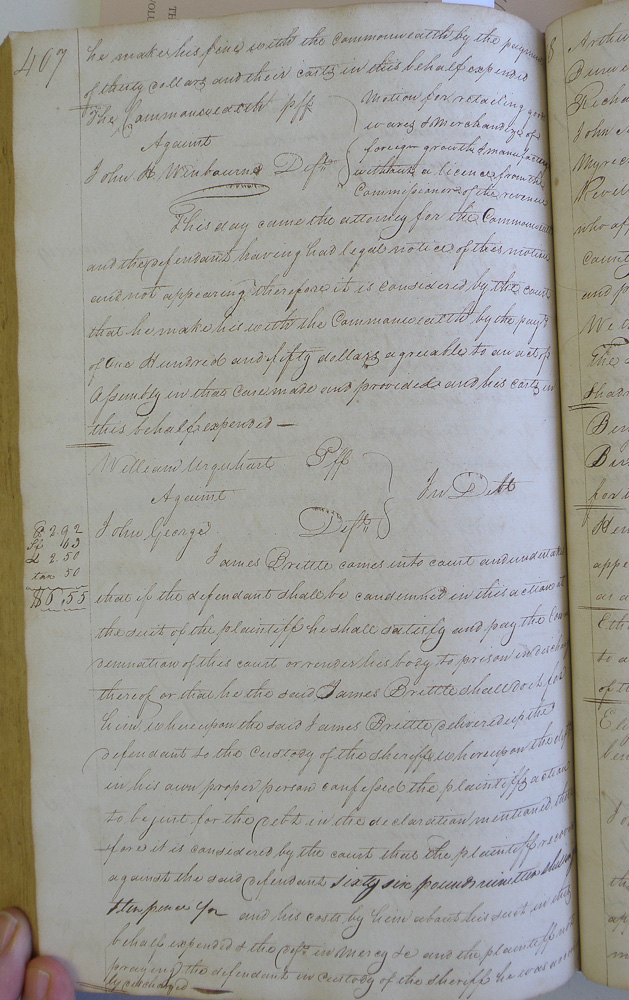 407
he makes his fine with the Commonwealth by the payment
of thirty dollars and their costs in this behalf expended
The Commonwealth pff
Against
John H Winbourne Deft
Motion for retailing goods
wares & Merchandize of
foreign growth & manufactory
without a licence from the
Commissioner of the revenue
This day came the attorney for the Commonwealth
and the defendant having had legal notice of this motion
and not appearing therefore it is considered by the court
that he make his with the Commonwealth by the paymt
of One Hundred and fifty dollars agreable to an act of
Assembly in that Case made and provided and his costs in
this behalf expended —
William Urquhart Pff
Against
John George Deft
In Debt
P 2.92
Sf 63
L 2.50
tax 50
$6.55
James Brittle comes into court and undertakes
that if the defendant shall be condemned in this action at
the suit of the plaintiff he shall satisfy and pay the Con
demnation of this court or render his body to prison in discharge
thereof or that he the said James Brittle shall do it for
him whereupon the said James Brittle delivered up the
defendant to the Custody of the sheriff whereupon the deft
in his own proper person confessed the plaintiffs action
to be just for the debt in the declaration mentioned there
fore it is considered by the court that the plaintiff recover
against the said defendant sixty six pounds nineteen shillings
& ten pence
and his costs by him about his suit in this
behalf expended & the deft in Mercy &c and the plaintiff not
praying the defendant in custody of the sheriff he was
discharged
Arthur
Richa
John
Myrce
who ap
County
and p
The
Ben
for
Hen
appe
as a
to a
of t